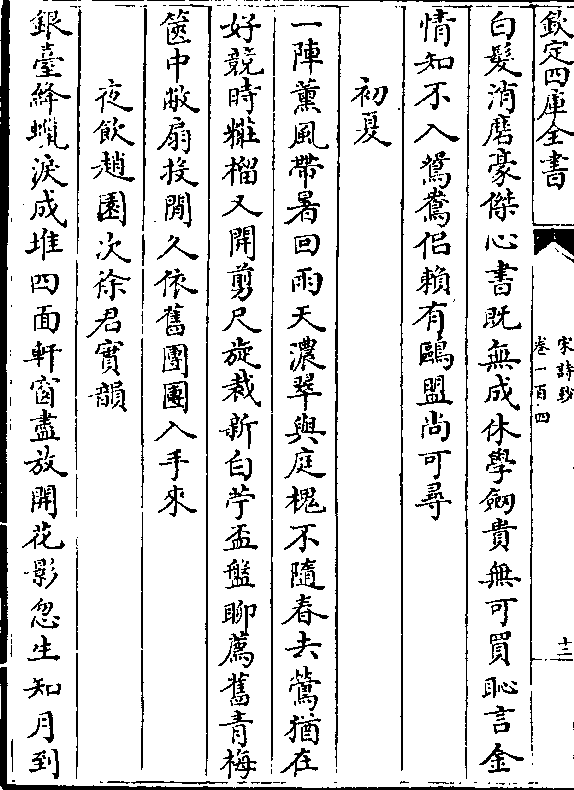 欽定四庫全書
宋詩鈔
卷一百四
十三
白髮消磨豪傑心書既無成休學劒貴無可買恥言金
情知不入鴛鴦侶賴有鷗盟尚可尋
初夏
一陣薰風帶暑回雨天濃翠與庭槐不隨春去鶯猶在
好競時粧榴又開剪尺旋裁新白苧盃盤聊薦舊青梅
篋中敝扇投閒久依舊團團入手來
夜飲趙園次徐君實韻
銀臺絳蠟淚成堆四面軒窗盡放開花影忽生知月到